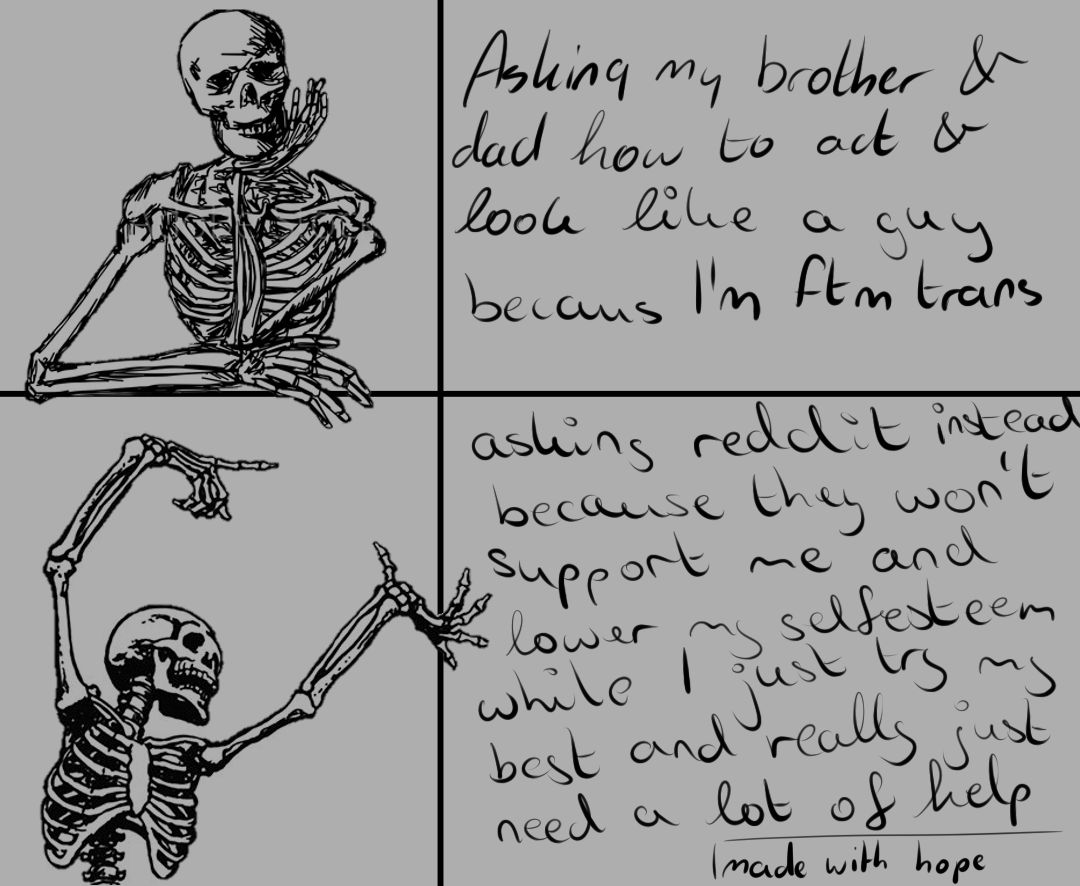 Asking my brother &
dad how to act &
look like a guy
becaus I'm ftm trans
asking reddit instead
because they won't
support me and
lower my selfesteem
while I just try my
best and really just
need a lot of help
made with hope